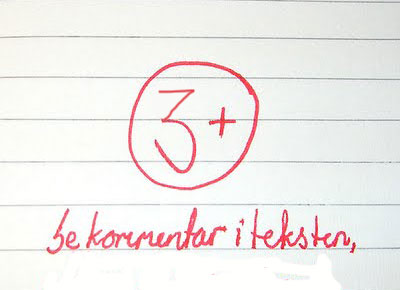 3+
Se kommentar i teksten,